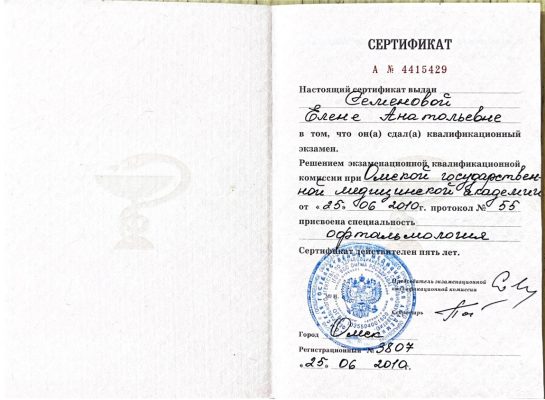 СЕРТИФИКАТ
А № 4415429
Настоящий сертификат выдан
Семеновой
Елене Анатольевне
в том, что он(а) сдал(а) квалификационный
экзамен.
Решением экзаменационной квалификационной
комиссии при Омской государствен-
ной медицинской академии
от «25» 06 2010 г. протокол № 55
присвоена специальность
офтальмология
Сертификат действителен пять лет.
Председатель экзаменационной
квалификационной комиссии
Секретарь
Город Омск
Регистрационный № 3807
«25» 06 2010г.